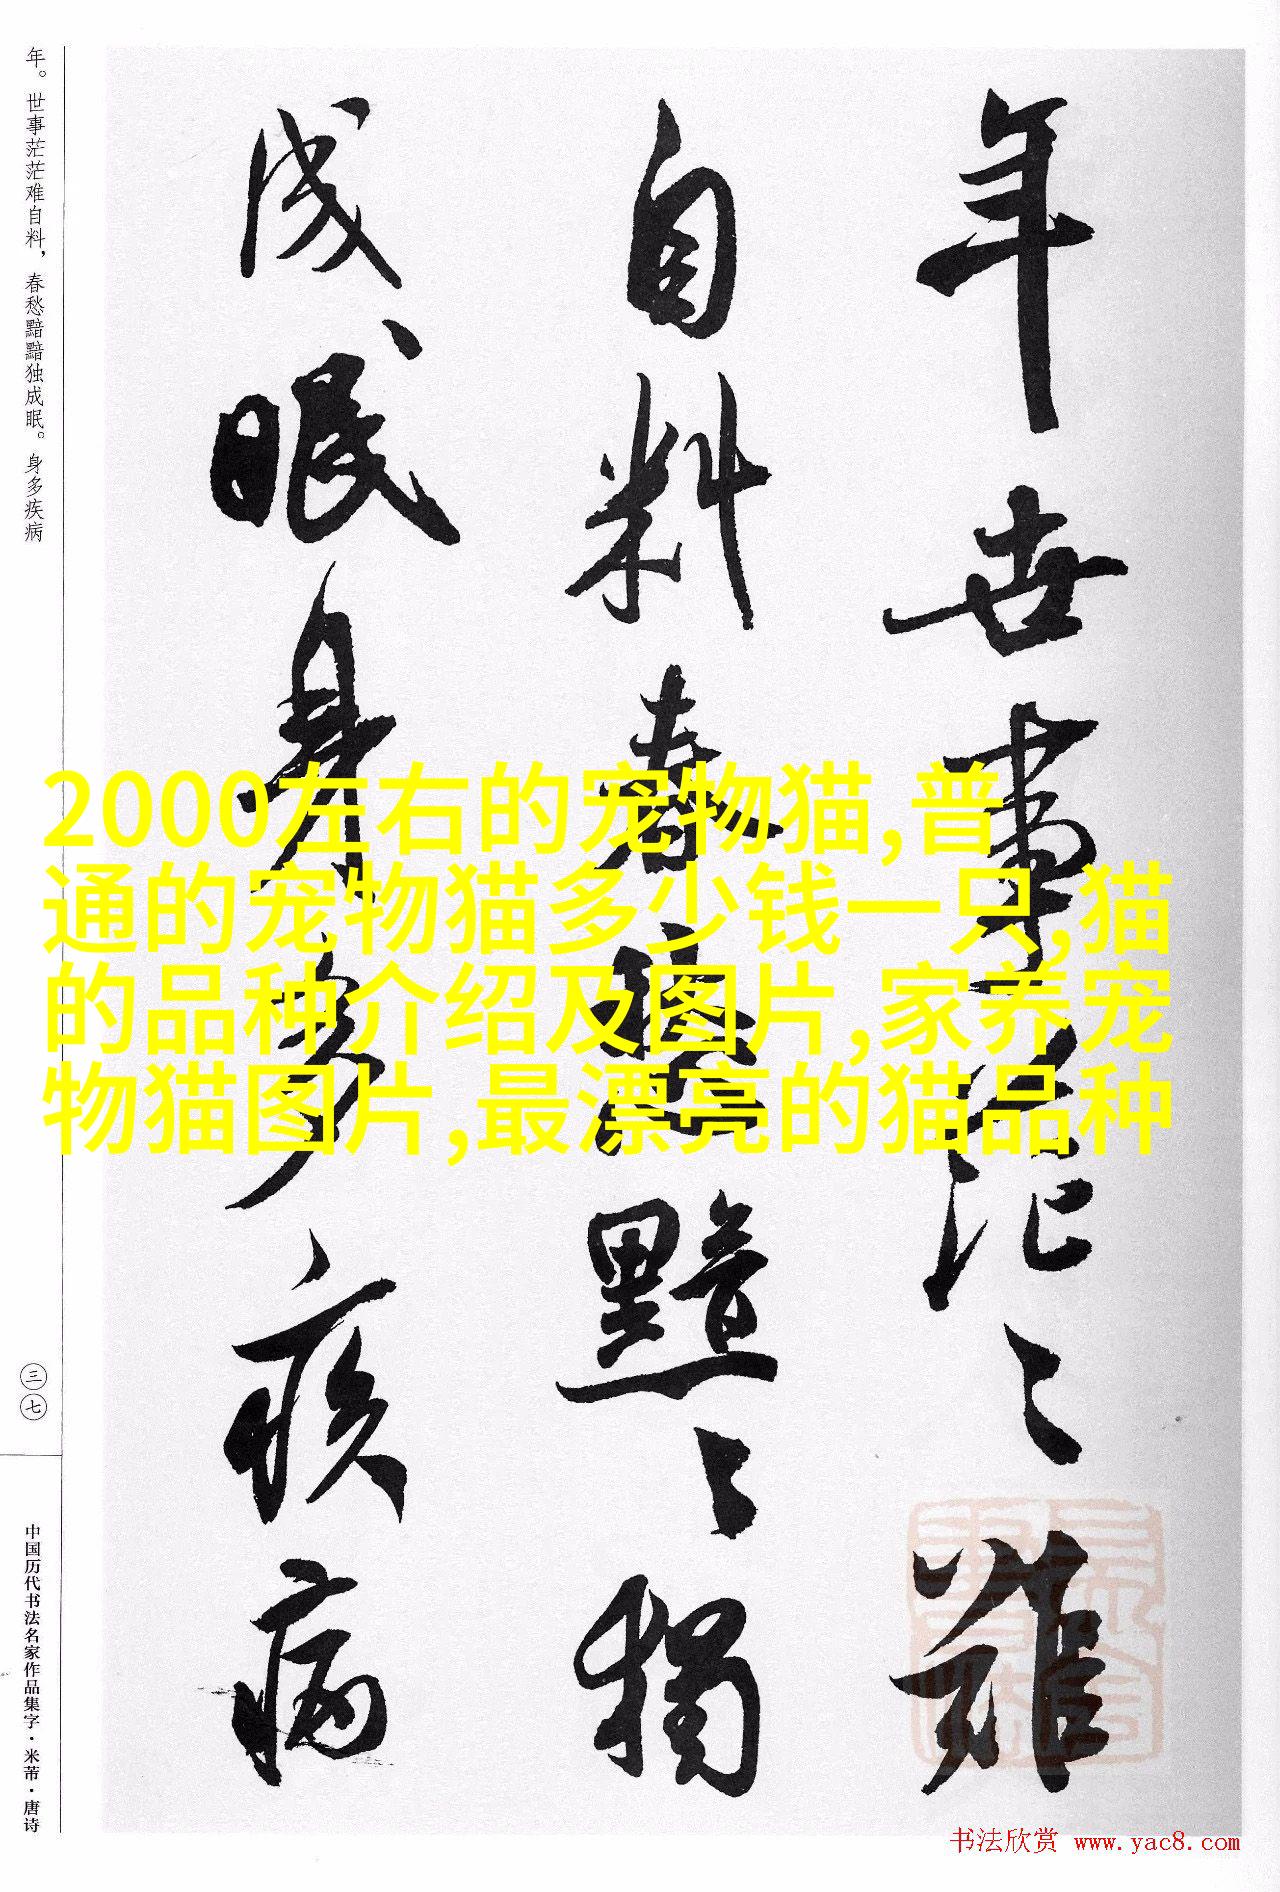 年世事茫〻難
自料春愁黯〻獨
成眠身多疾病
年。世事茫茫难自料，春愁黯黯独成眠。身多疾病
三七
中国历代书法名家作品集字·米芾·唐诗
2000左右的宠物猫,普
通的宠物猫多少钱一只,猫
的品种介绍及图片,家养宠
物猫图片,最漂亮的猫品种
书法欣赏 www.yac8.com